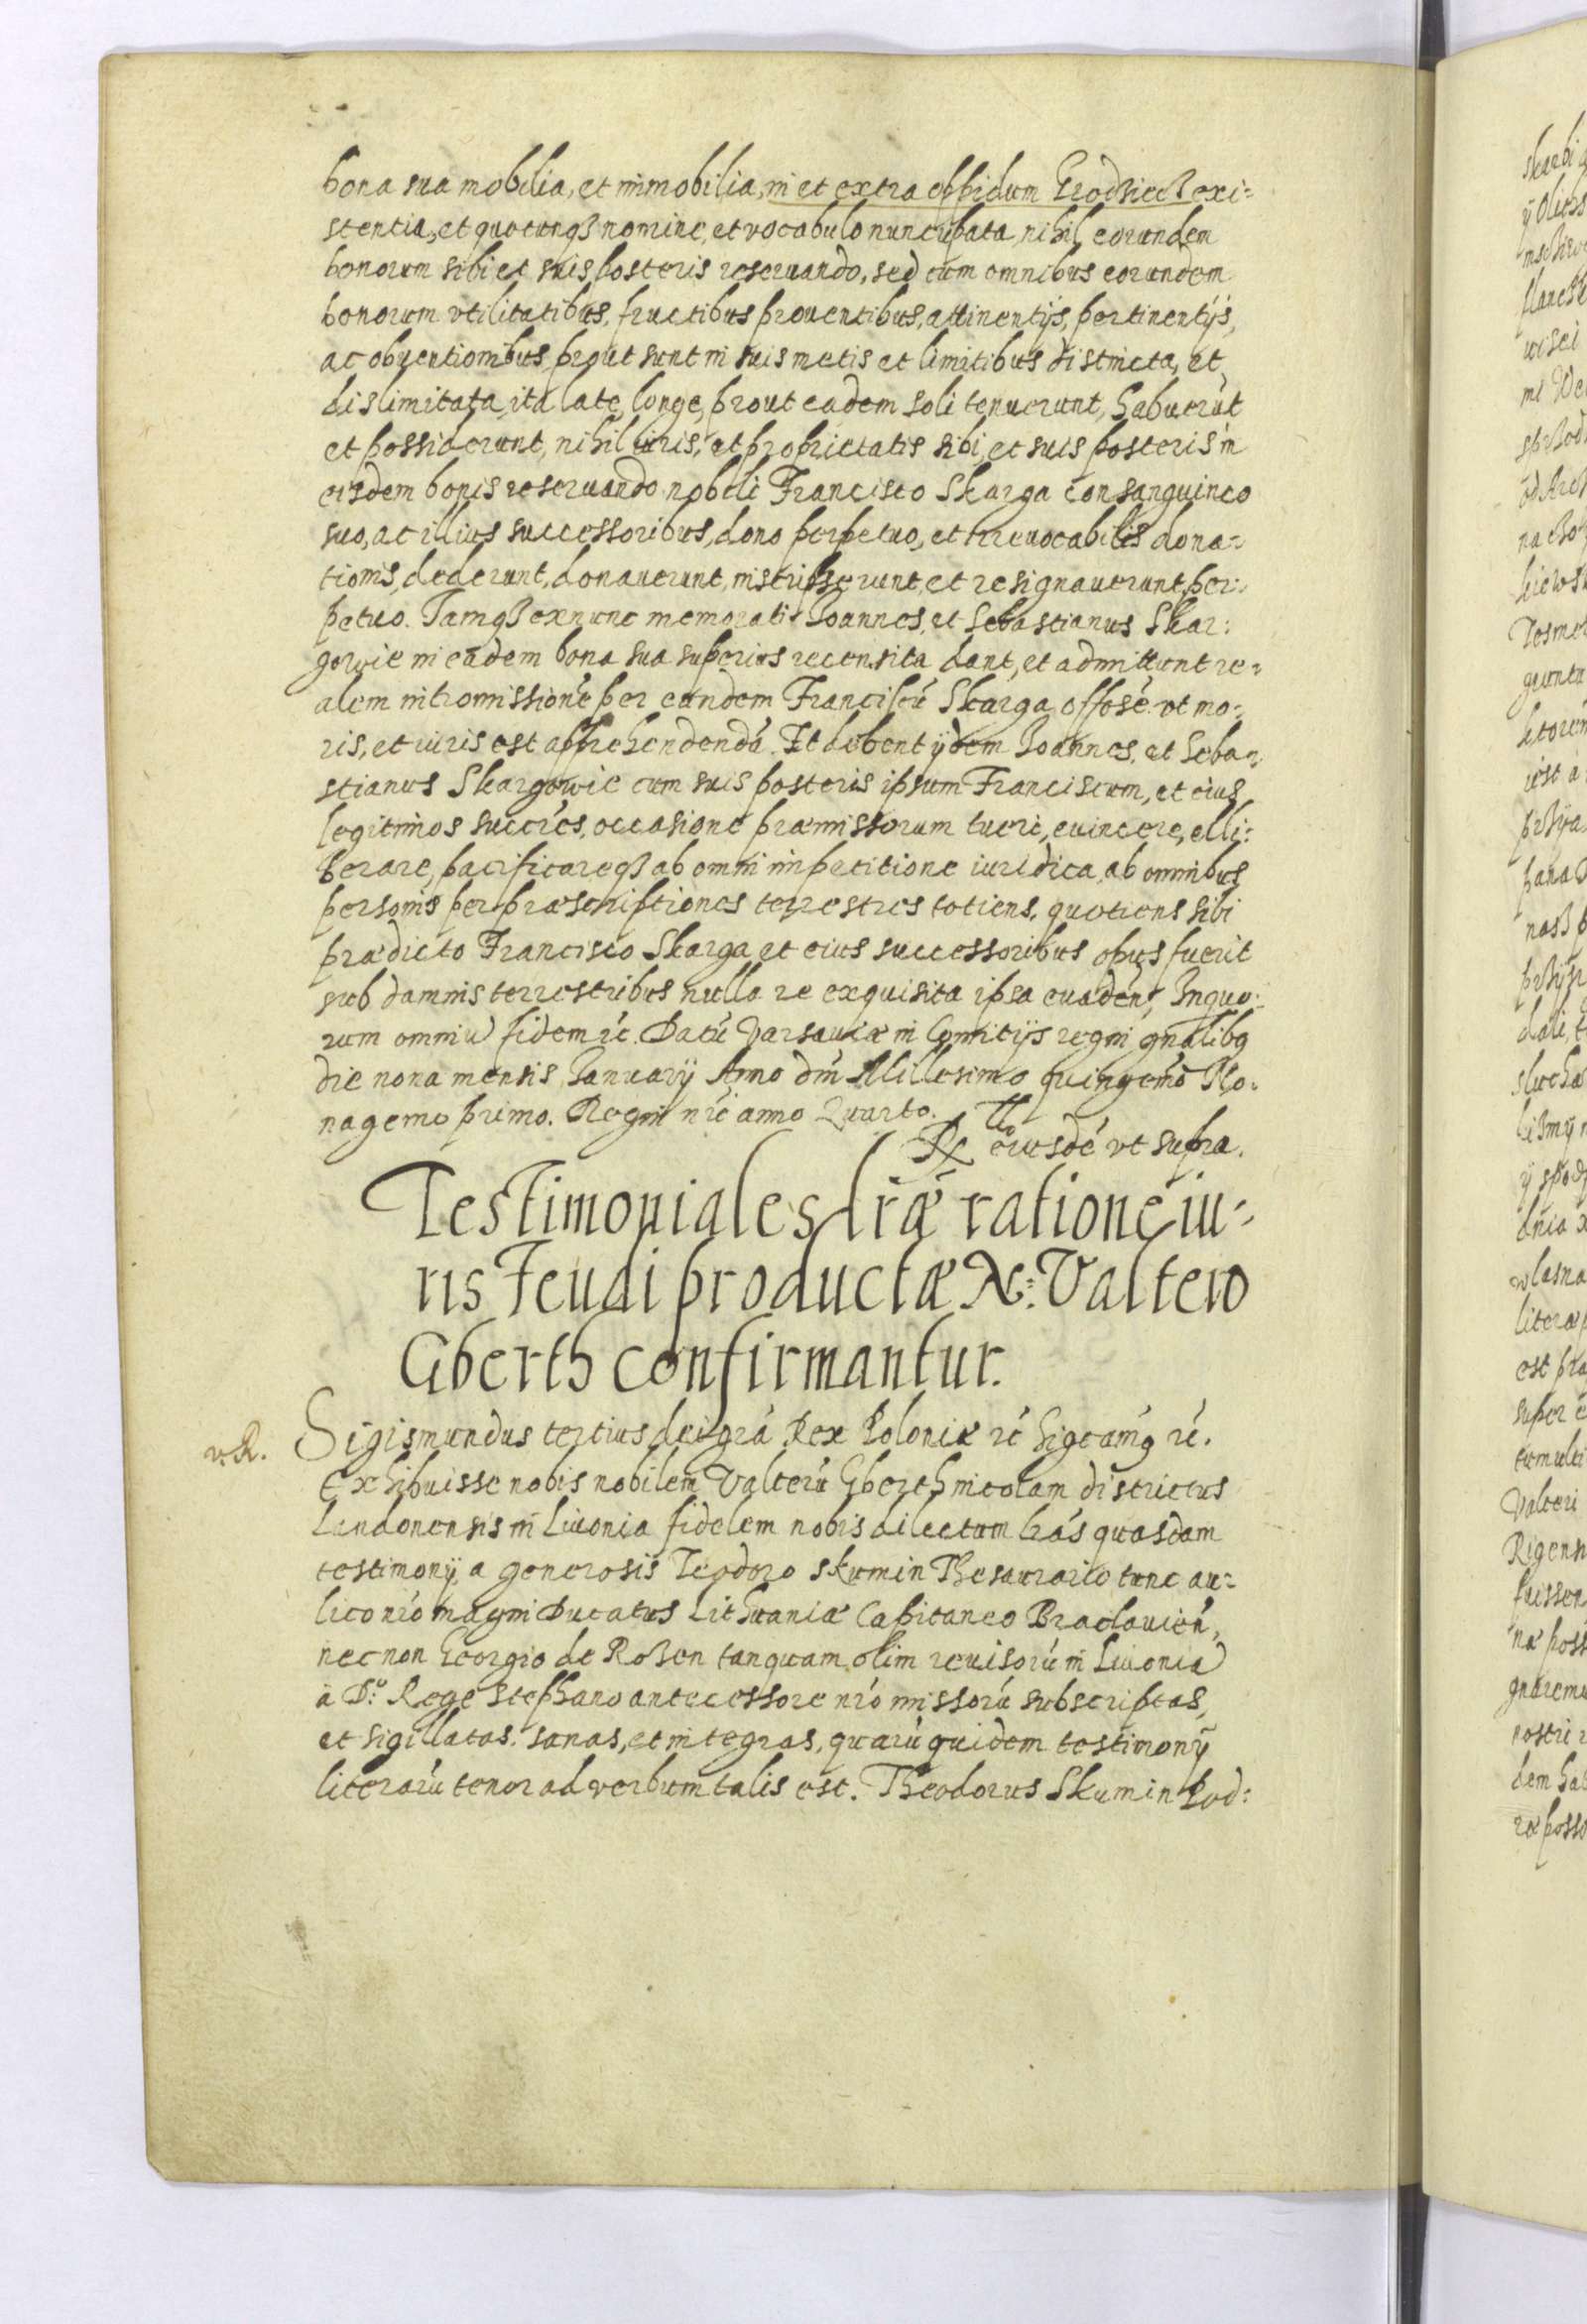 bona sua mobilia, et immobilia, in et extra oppidum Grodziecz exi:
stentia, et quocunqȝ nomine, et vocabulo nuncupata, nihil eorundem
bonorum sibi et suis posteris reseruando, sed cum omnibus eorundem
bonorum vtilitatibus, fructibus prouentibus, attinentijs, pertinentijs,
ac obuentionibus, prout sunt in suis metis et limitibus distincta, et
dislimitata, ita late, longe, prout eadem soli tenuerunt, habuerūt
et possiderunt, nihil iuris, et proprietatis sibi, et suis posteris in
eisdem bonis reseruando nobili Francisco Skarga consanguineo
suo, ac illius successoribus, dono perpetuo, et irreuocabilis dona:
tionis, dederunt, donauerunt, inscripserunt, et resignauerunt, per:
petuo. Iamqȝ ex nunc memorati Ioannes, et Sebastianus Skar:
gowie in eadem bona sua superius recensita dant, et admittunt re:
alem intromissionē per eundem Franciscū Skarga, offosē. vt mo:
ris, et iuris est apprehendendā. Et debent ijdem Ioannes, et Seba:
stianus Skargowie cum suis posteris ipsum Franciscum, et eius
legitimos succrēs, occasione præmissorum tueri, euincere, elli:
berare, pacificareqȝ ab omni impetitione iuridica, ab omnibus
personis per præscriptiones terrestres totiens, quotiens sibi
prædicto Francisco Skarga et eius successoribus opus fuerit
sub damnis terrestribus nulla re exquisita ipsa euadenꝭ, In quo:
rum omniū fidem rē. Datū Varsauiæ in Comitijs regni gnālibꝰ
die nona mensis Ianuarij Anno dm̄ Millesimo quingemō No:
nagemo primo. Regni nri anno Quarto.
Rx eiusdē vt supra.
Testimoniales lræ ratione iu:
ris Feudi productæ N: Valtero
Gberth confirmantur.
v. R. Sigismundus tertius dei grā Rex Poloniæ rē Sigcāmꝫ rē.
Exhibuisse nobis nobilem Valterū Gberth incolam districtus
Lendonensis in Liuonia fidelem nobis dilectum lrās quasdam
testimonij, a generosis Teodoro skumin Thesaurario tunc au:
lico nrō magni Ducatus Lithuaniæ Capitaneo Braclauien̄,
nec non Georgio de Rosen tanquam olim reuisorū in Liuonia
a D: Rege Stephano antecessore nrō missorū subscriptas,
et sigillatas, sanas, et integras, quarū quidem testimonij
literarū tenor ad verbum talis est. Theodorus Skumin Pod: